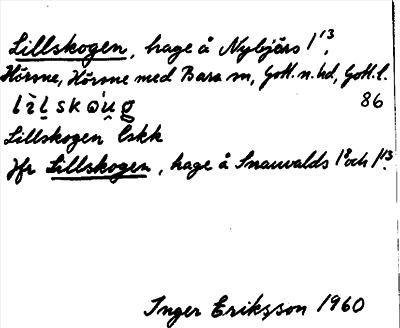 Lillskogen, hage å Nybjärs 1¹³.
Hörsne, Hörsne med Bara sn, Gotl. n. hd, Gotl. l.
86
Lillskogen Eskk
Jfr Lillskogen, hage å Snauvalds 1² och 1¹³.
Inger Eriksson 1960